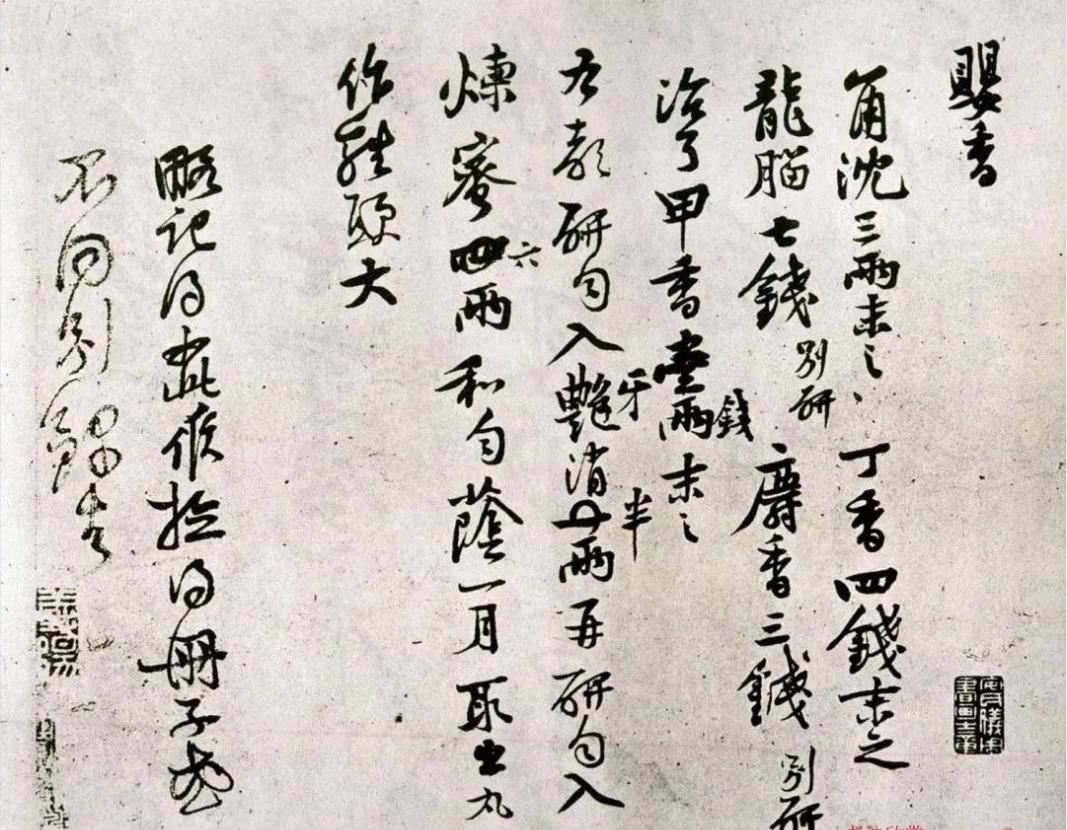 嬰香
角沈三兩末之丁香四錢末之
龍腦七錢別研麝香三錢別研
治了甲香壹兩錢末之
右都研勻入艷牙消半兩再研勻入
煉蜜四六兩和勻蔭一月取出丸
作雞頭大
略記得此候撿得冊子或
不同別錄去